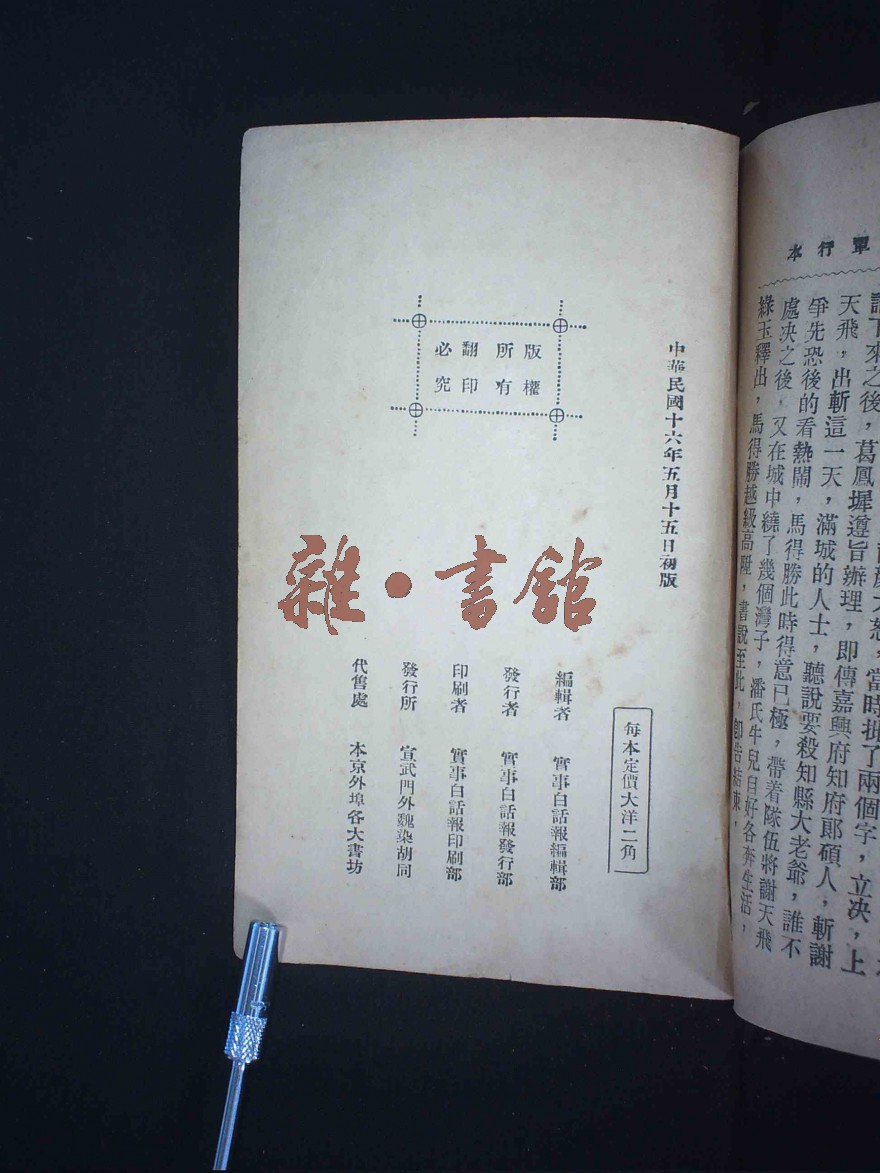 單行本
天飛，出斬這一天，滿城的人士，聽說要殺知縣大老爺，誰不
爭先恐後的看熱鬧，馬得勝此時得意已極，帶着隊伍將謝天飛
處决之後，又在城中繞了幾個灣子，潘氏牛兒自好各奔生活，
綠玉釋出，馬得勝越級高陞，書說至此，卽告結束，
中華民國十六年五月十五日初版
版權
所有
翻印
必究
每本定價大洋二角
編輯者 實事白話報編輯部
發行者 實事白話報發行部
印刷者 實事白話報印刷部
發行所 宣武門外魏染胡同
代售處 本京外埠各大書坊
雜·書館